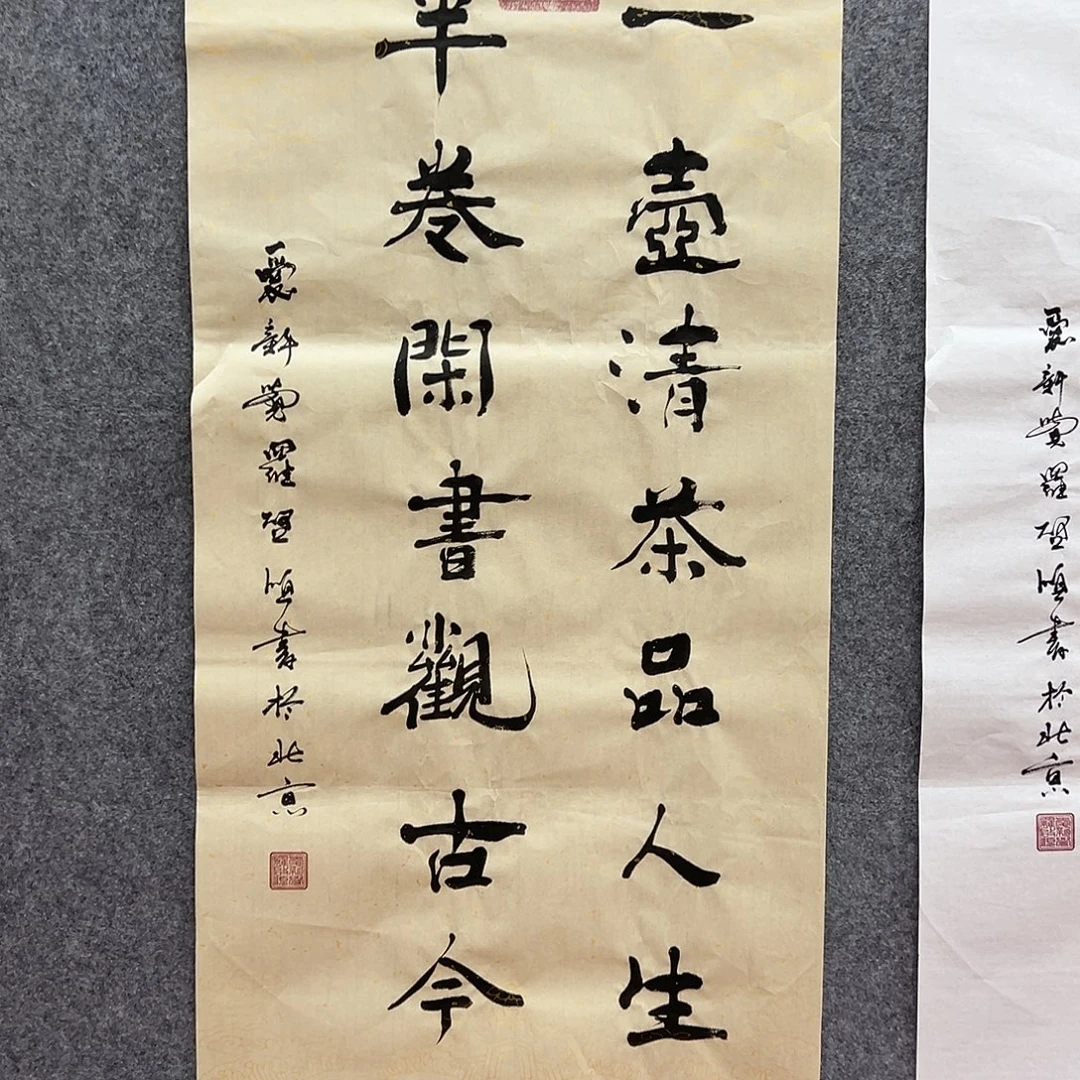 一壺清茶品人生
半卷閑書觀古今
愛新覺羅啟恒書於北京
愛新覺羅啟恒書於北京